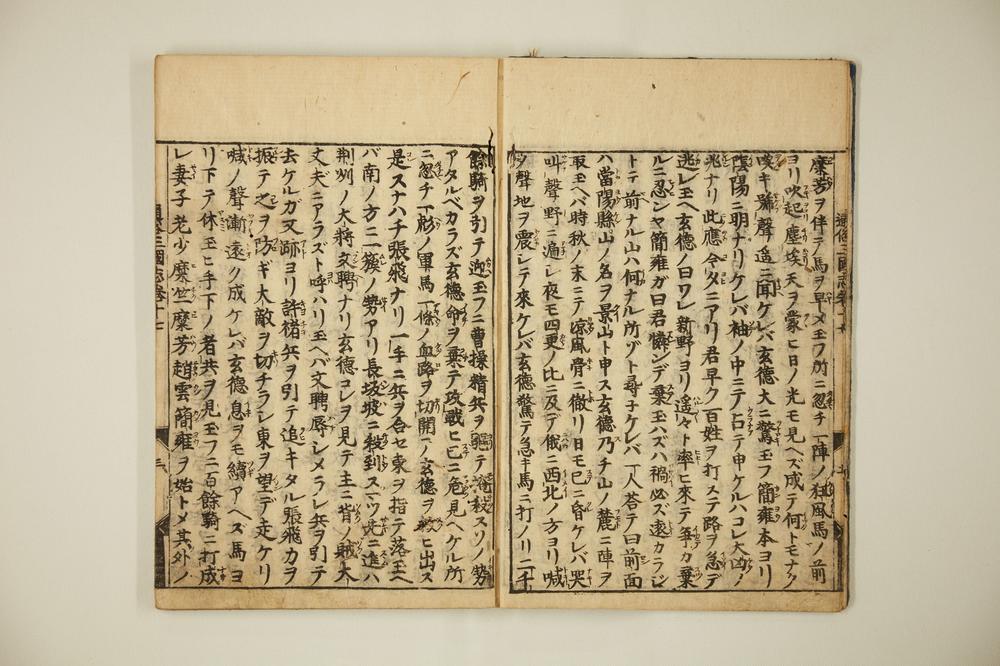 糜芳ヲ伴テ馬ヲ早メ玉フ所ニ忽チ一陣ノ狂風馬ノ前
ヨリ吹起塵埃天ヲ蒙ヒ日ノ光モ見ヘズ成テ何トモナク
嘆キ號聲遥ニ聞ケレバ玄德大ニ驚玉フ簡雍本ヨリ
陰陽ニ明ナリケレバ袖ノ中ニテ占テ申ケルハコレ大凶ノ
兆ナリ此應今夕ニアリ君早ク百姓ヲ打ステ路ヲ急デ
逃レ玉ヘ玄德ノ曰ワレ新野ヨリ遥々ト率ヒ來テ争カ棄
ルニ忍ンヤ簡雍ガ曰君憐ンデ棄玉ハズハ禍必ズ遠カラジ
トテ前ナル山ハ何ナル所ゾト尋子ケレバ一人荅テ曰前面
ハ當陽縣山ノ名ヲ景山ト申ス玄德乃チ山ノ麓ニ陣ヲ
取玉ヘバ時秋ノ末ニテ涼風骨ニ徹リ日モ已ニ昏ケレバ哭
叫聲野ニ遍シ夜モ四更ノ比ニ及デ俄ニ西北ノ方ヨリ喊
ヲ聲地ヲ震シテ來ケレバ玄德驚テ急ギ馬ニ打ノリ二千
餘騎ヲ引テ迎玉フニ曹操精兵ヲ驅テ殺スソノ勢
アタルベカラズ玄德命ヲ棄テ攻戰ヒ已ニ危見ヘケル所
ニ忽チ一彪ノ軍馬一條ノ血路ヲ切開ノ玄德ヲ救ヒ出ス
是スナハチ張飛ナリ一手ニ兵ヲ合セ東ヲ指テ落玉ヘ
バ南ノ方ニ一簇ノ勢アリ長坂坡ニ殺到ス一ツ先ニ進ハ
荆州ノ大將文聘ナリ玄德コレヲ見テ主ニ背ノ賊大
丈夫ニアラズト呼ハリ玉ヘバ文聘辱シメラレ兵ヲ引テ
去ケルガ又跡ヨリ許褚兵ヲ引テ追キタル張飛カヲ
振テ之ヲ防ギ大敵ヲ切チラシ東ヲ望デ走ケリ
喊ノ聲漸遠ク成ケレバ玄德息ヲモ續アヘズ馬ヨ
リ下テ休玉ヒ手下ノ者共ヲ見玉フニ百餘騎ニ打成
レ妻子老少糜竺糜芳趙雲簡雍ヲ始トメ其外ノ
通俗三國志卷十七